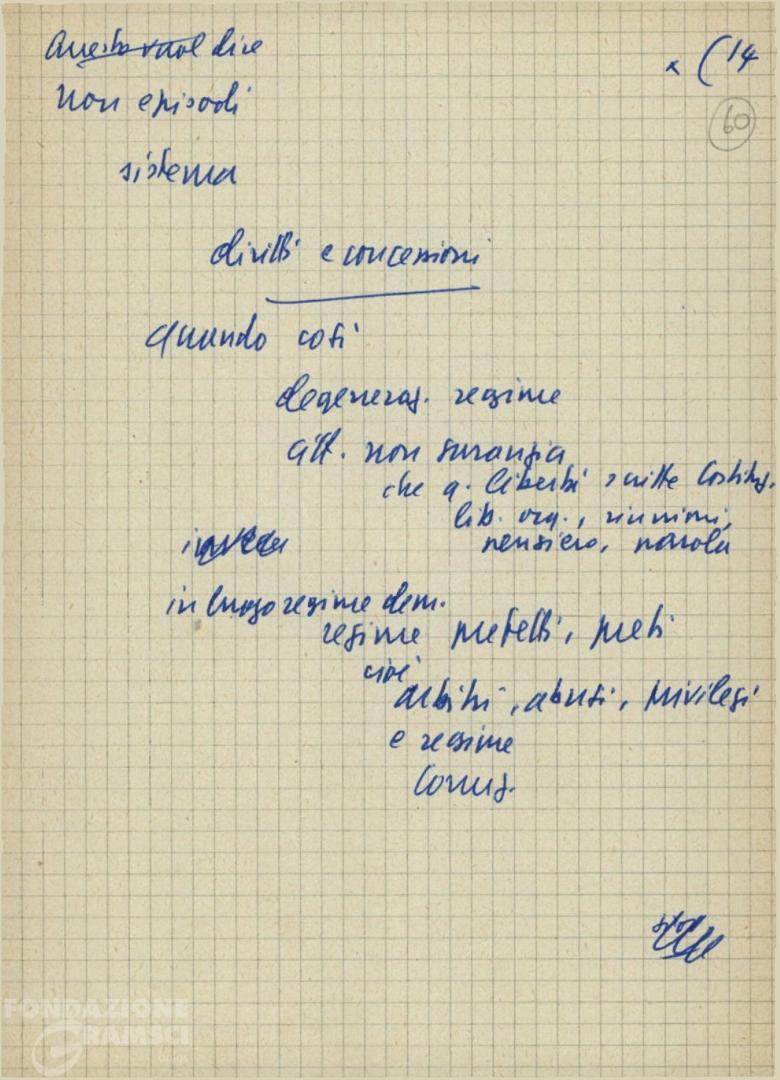 Questo vuol dire
× (14
non episodi
60
sistema
diritti e concessioni
quando così
degeneraz. regime
att. non garanzia
che q. libertà scritte Costituz.
lib. org., riunioni,
pensiero, parola
in luogo regime dem.
regime prefetti, preti
cioè
arbitri, abusi, privilegi
e regime
Corruz.
FONDAZIONE
GRAMSCI